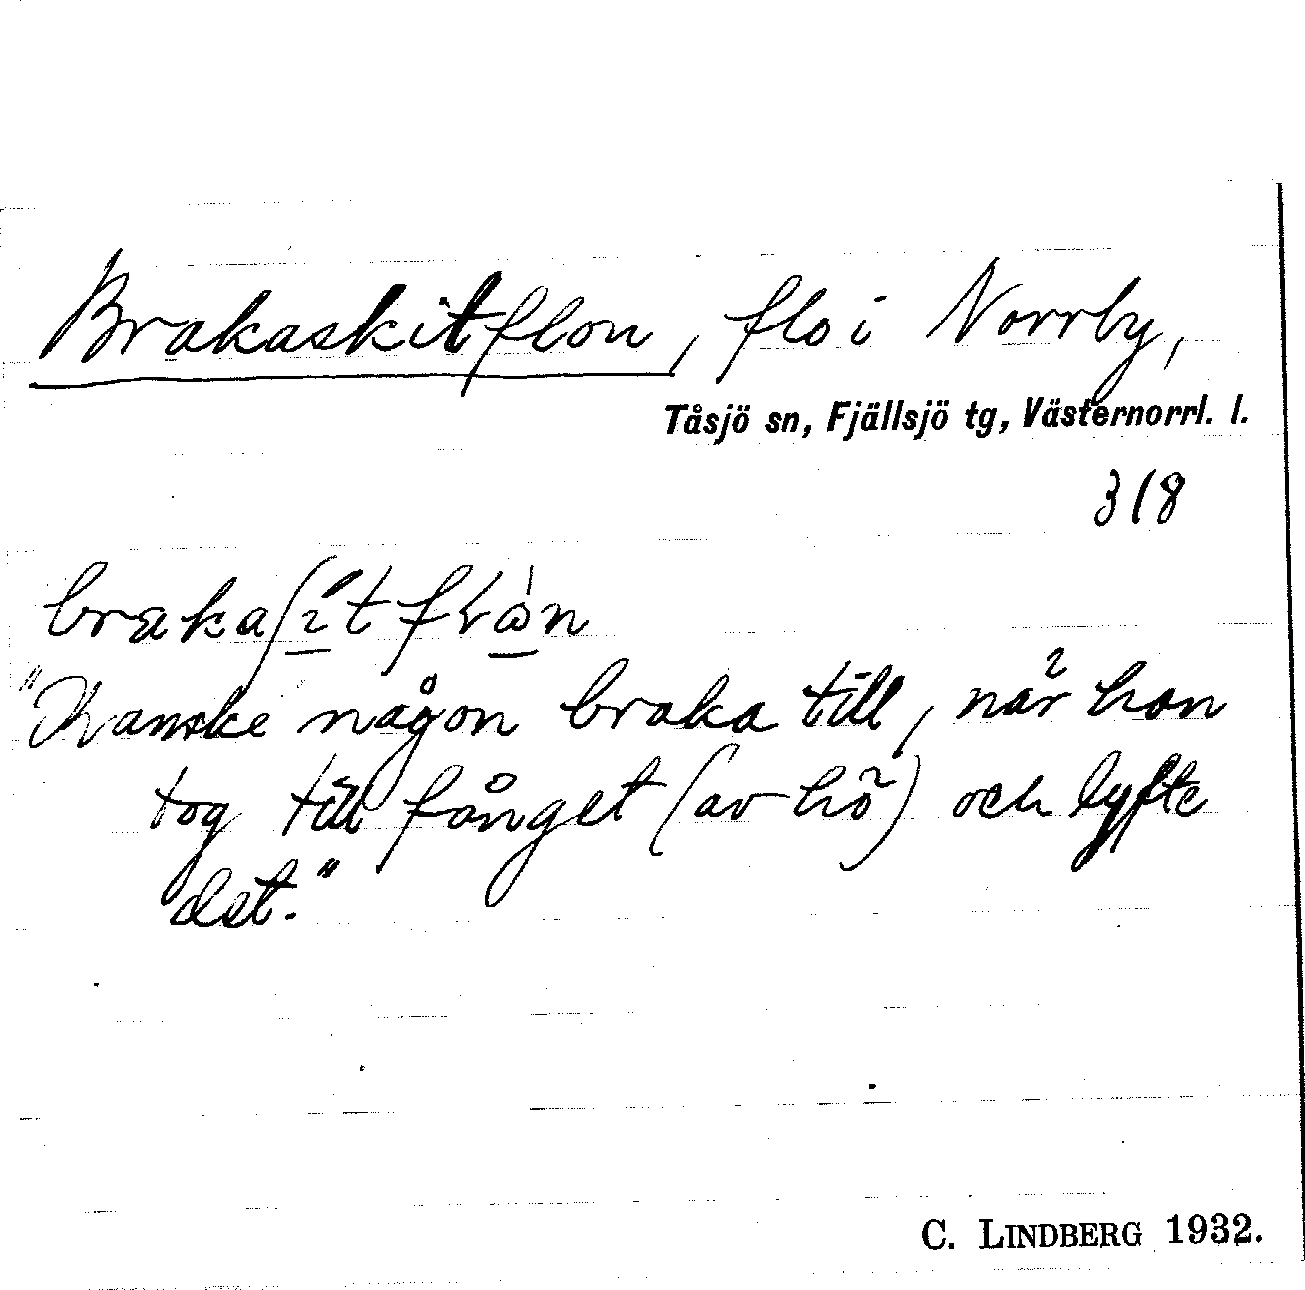 Brakaskitflon, flo i Norrby,
Tåsjö sn, Fjällsjö tg, Västernorrl. l.
318
"Kanske någon braka till, när han
tog till fånget (av hö) och lyfte
det."
C. LINDBERG 1932.